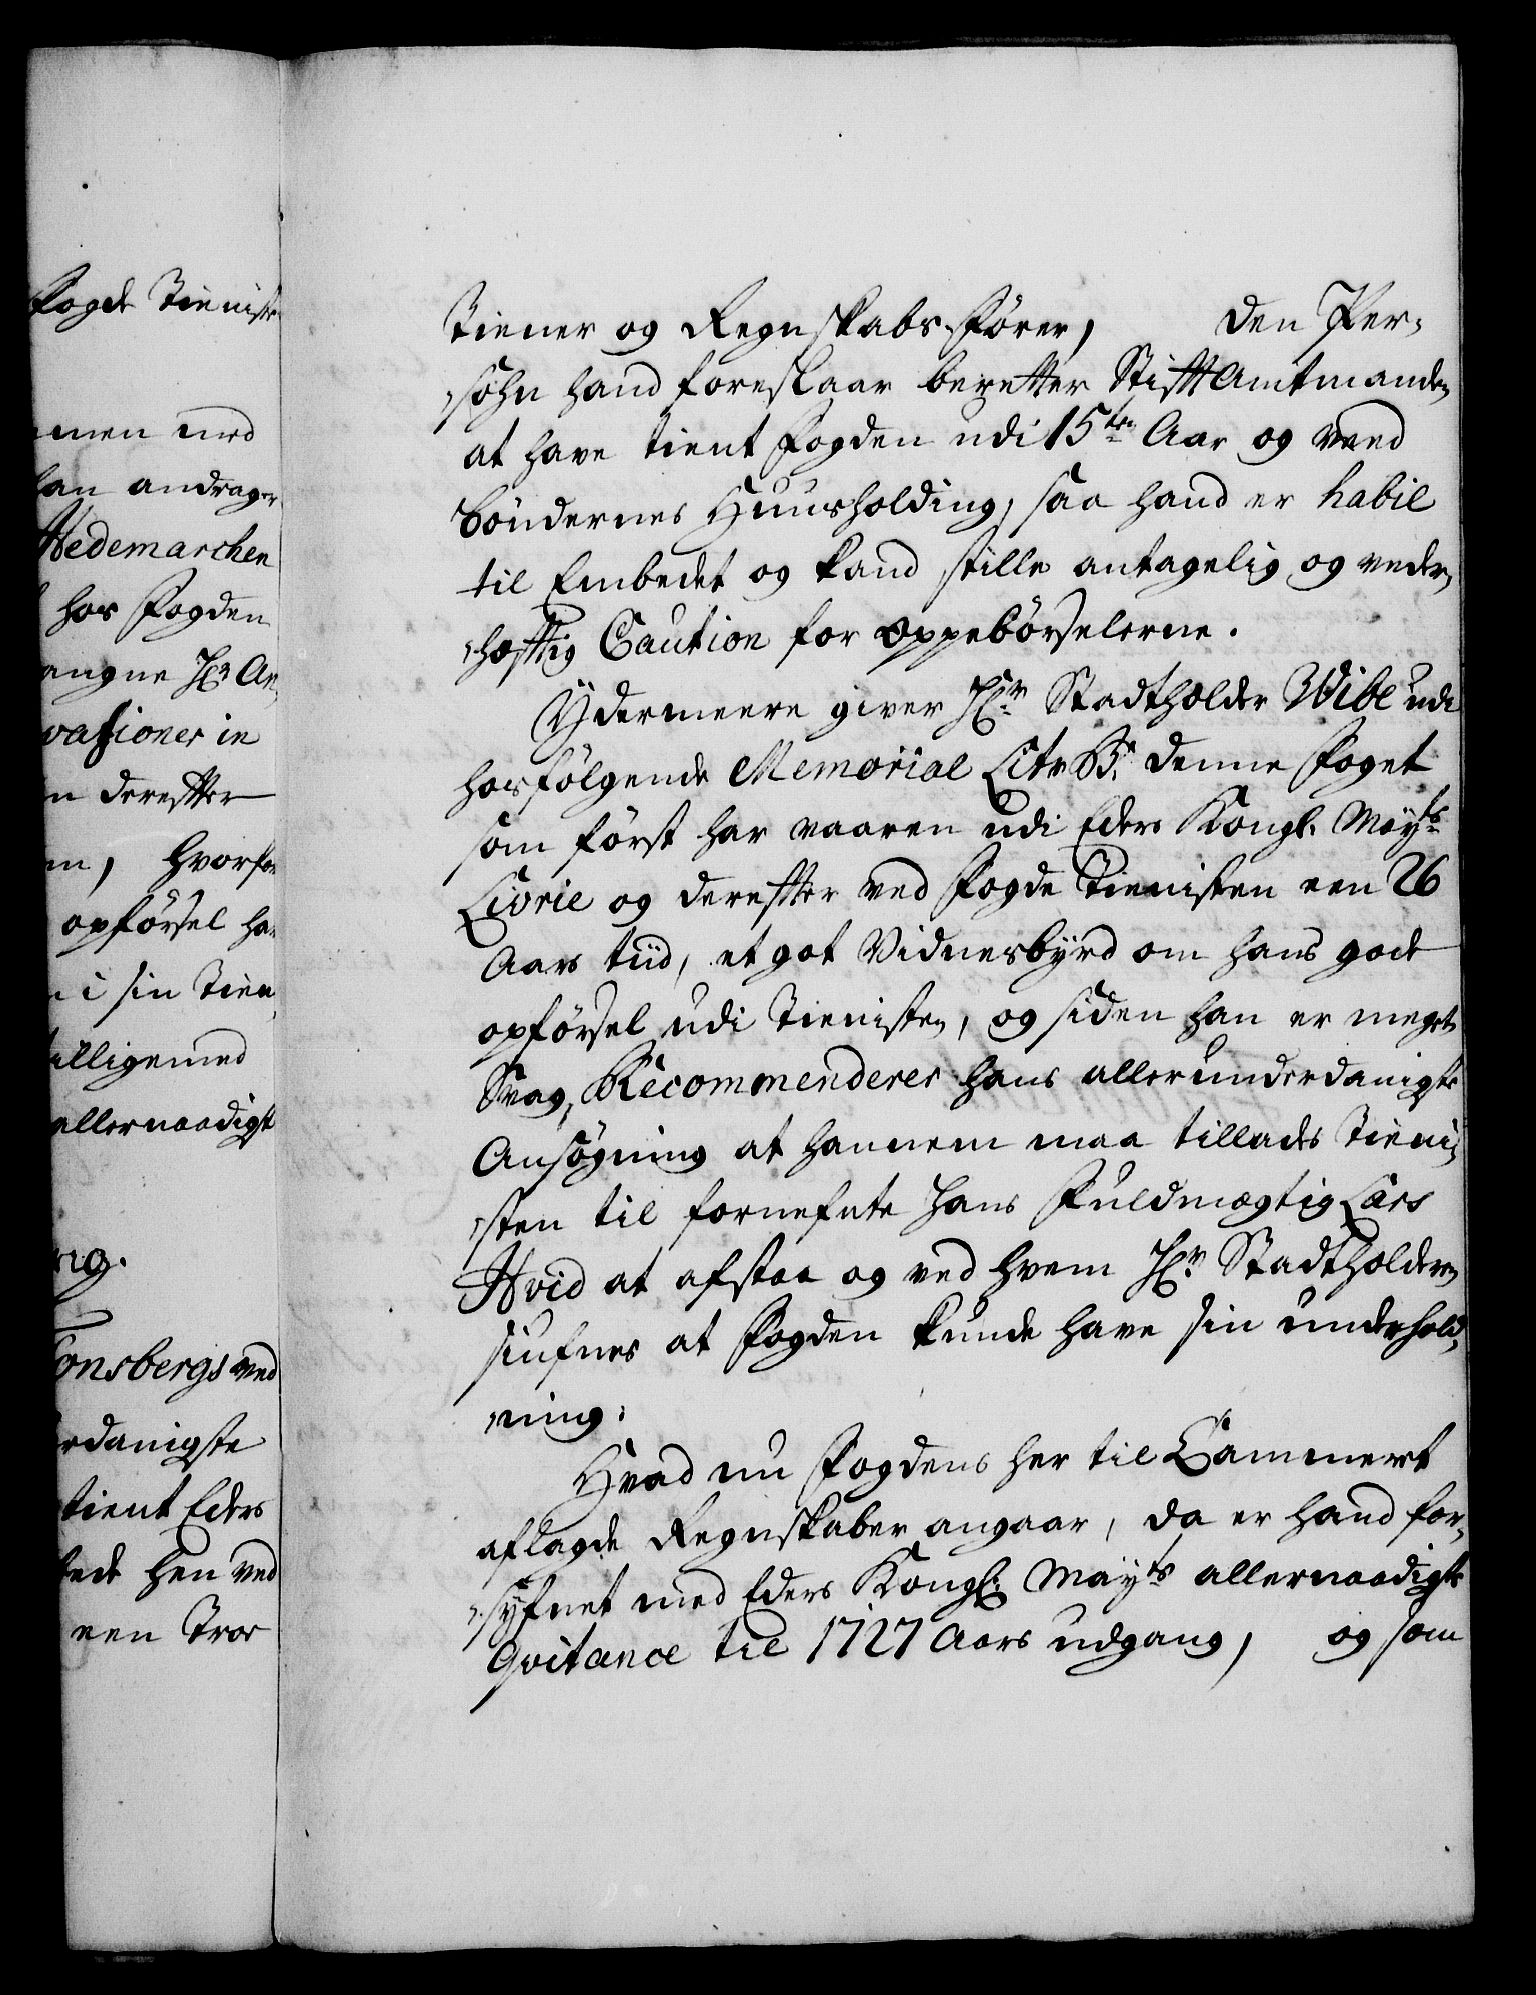 Fogde Tieniste
men med
han andrager
Hedemarchen
hos Fogden
angne Hr An
vationer in
n derefter
m, hvorfor
opførsel ha
i sin Tien
tilligemed
allernaadigst
rig.
Tønsbergs ved
rdanigste
tient Eders
tede hen ved
een Tros
Tiener og Regnskabs-fører, den Per-
sohn hand foreslaar beretter Stift Amtmanden
at have tient Fogden udi 15ten Aar og veed
Böndernes Huusholding, saa hand er habil
til Embedet og kand stille antagelig og veder-
hæftig Caution for oppebörselerne.
Ydermeere giver Hr. Stadtholder Wibe udi
hosfölgende Memorial Litr B. denne Foget
som först har vaaren udi Eders Kongl. Mayts
Livrie og derefter ved Fogde Tienisten een 26
Aars tiid, et got Vidnesbyrd om hans gode
opförsel udi Tienisten, og siden han er meget
Svag, Recommenderer hans allerunderdanigste
Ansögning at hannem maa tillades Tieni-
sten til fornefnte hans Fuldmægtig Lars
Hvid at afstaa og ved hvem Hr. Stadtholderen
siufnes at Fogden kunde have sin underhold-
ning.
Hvad nu Fogdens her til Cammeret
aflagde Regnskaber angaar, da er hand for-
syfnet med Eders Kongl. Mayts allernaadigste
Qvitance til 1727 Aars udgang, og som